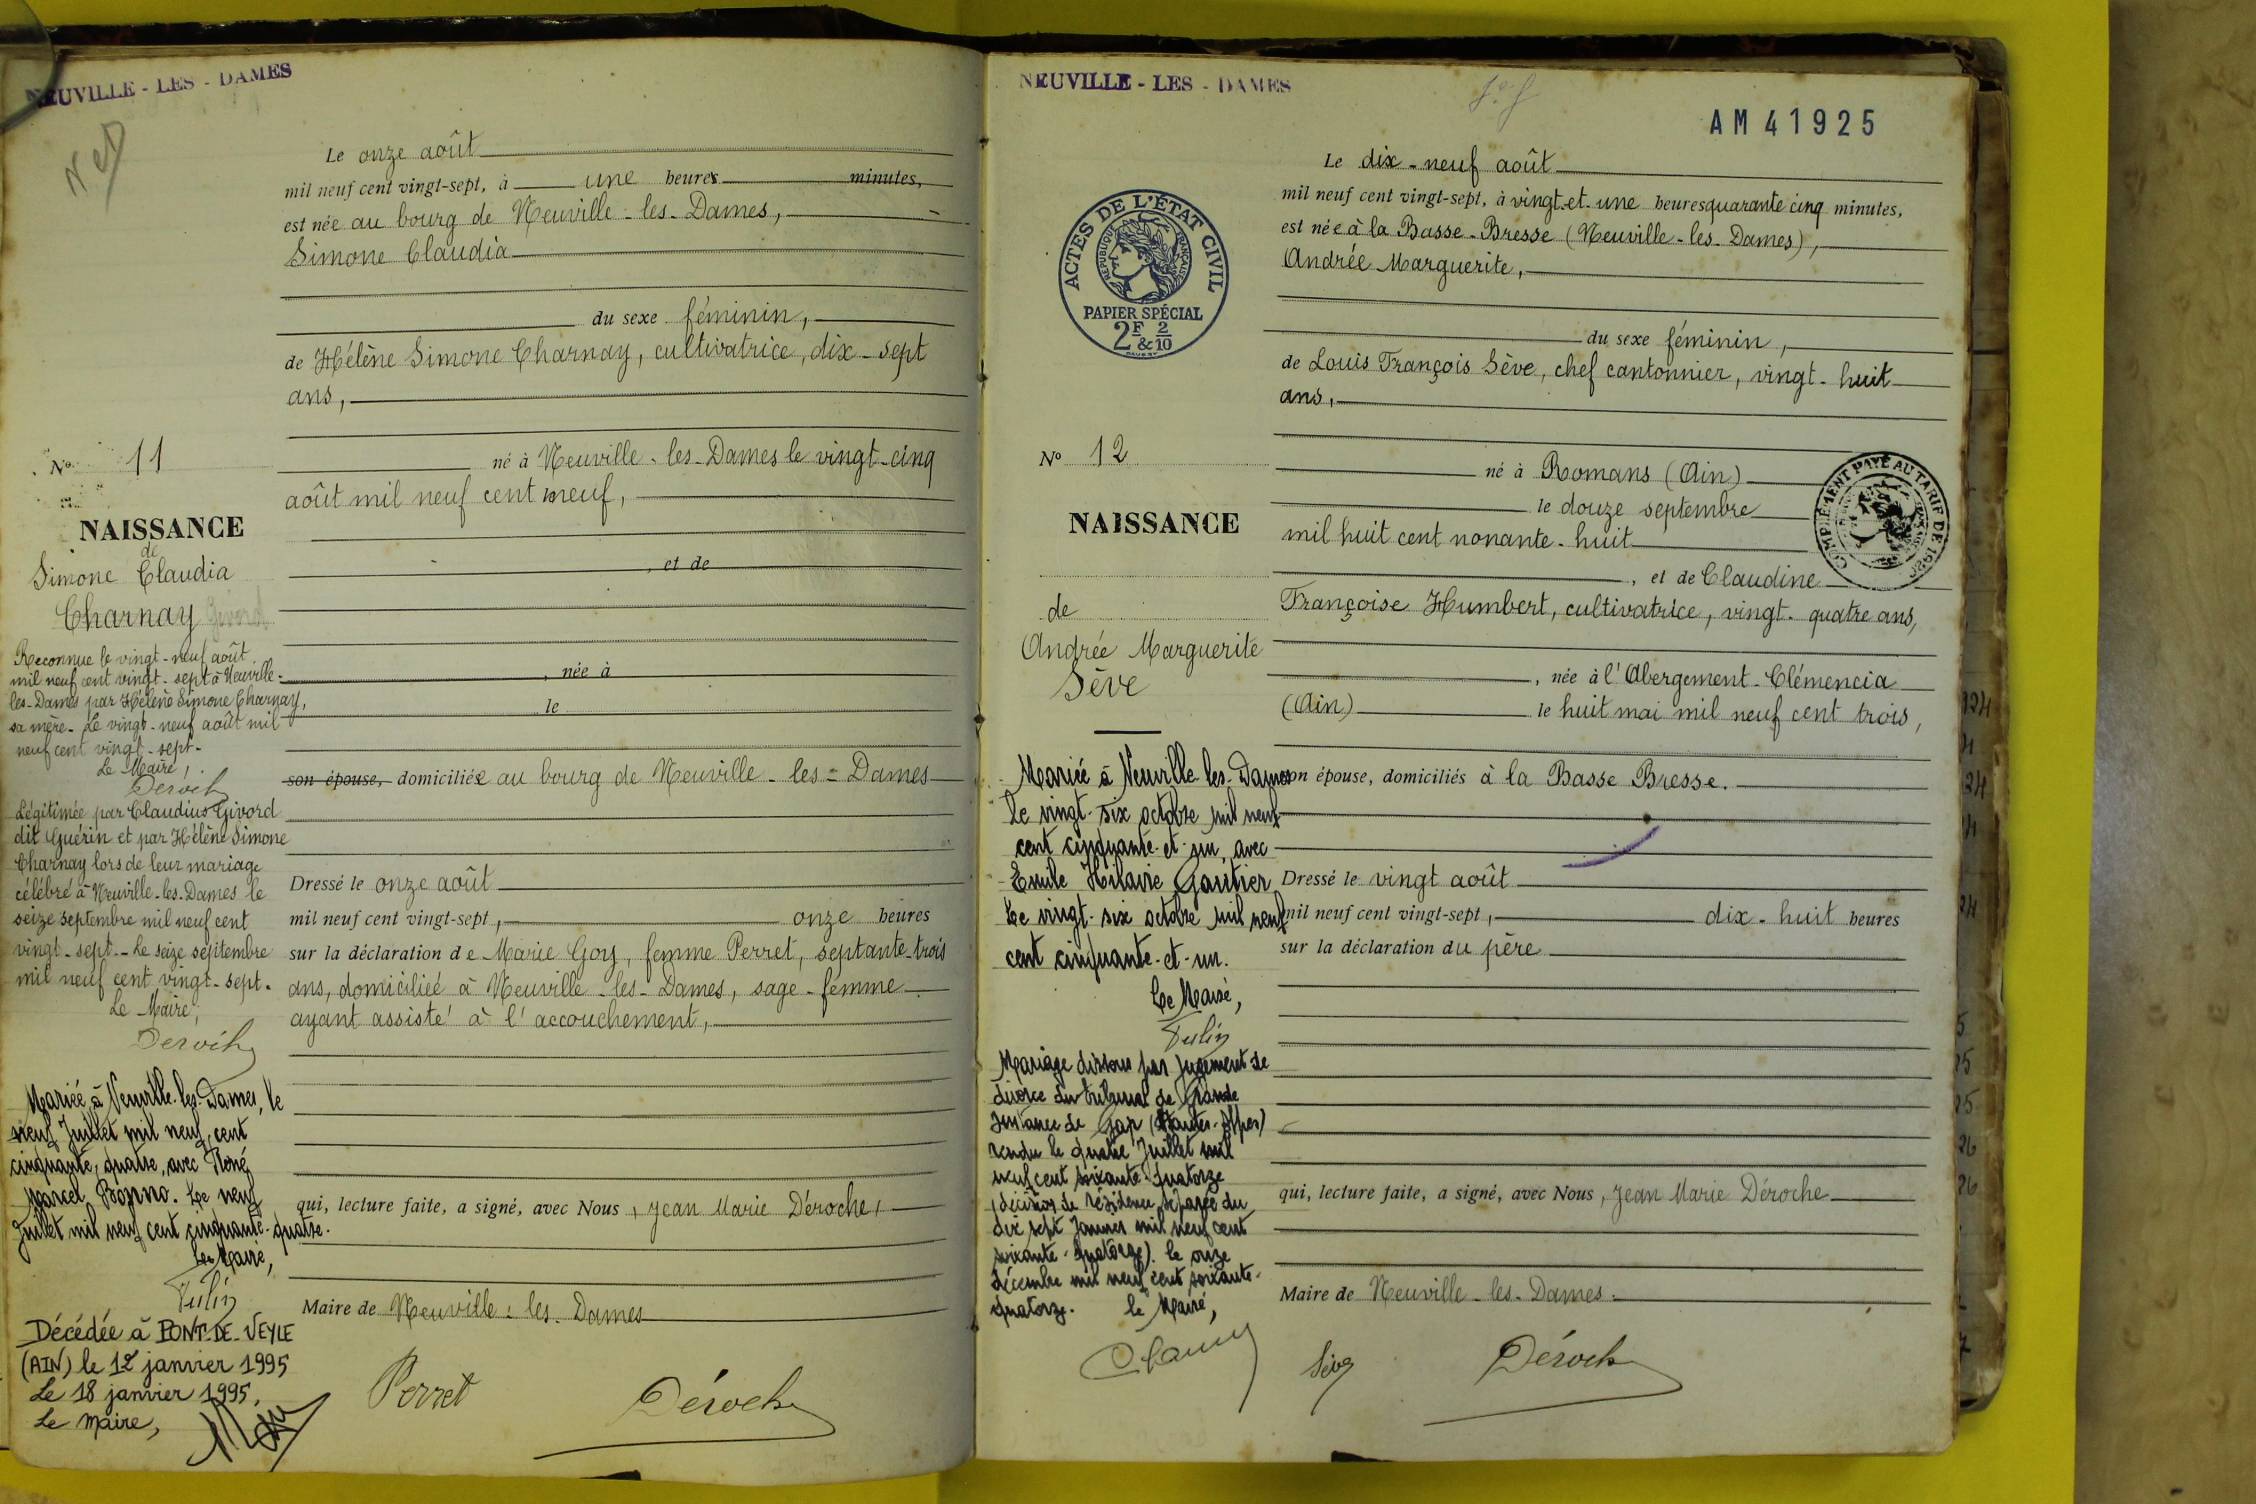 NEUVILLE - LES - DAMES
Le onze août
mil neuf cent vingt-sept, à une heures minutes,
est née au bourg de Neuville-les-Dames,
Simone Claudia
du sexe féminin,
de Hélène Simone Charnay, cultivatrice, dix-sept
ans,
né à Neuville-les-Dames le vingt-cinq
août mil neuf cent neuf,
, et de
, née à
le
son épouse, domiciliée au bourg de Neuville-les-Dames
Dressé le onze août
mil neuf cent vingt-sept, onze heures
sur la déclaration de Marie Goy, femme Perret, septante-trois
ans, domiciliée à Neuville-les-Dames, sage-femme
ayant assisté à l'accouchement,
qui, lecture faite, a signé, avec Nous, Jean Marie Déroche,
Maire de Neuville-les-Dames
Perret Déroche
N° 11
NAISSANCE
de
Simone Claudia
Charnay Givord
Reconnue le vingt-neuf août
mil neuf cent vingt-sept à Neuville-
les-Dames par Hélène Simone Charnay,
sa mère. Le vingt-neuf août mil
neuf cent vingt-sept.
Le Maire,
Déroche
Légitimée par Claudius Givord
dit Guérin et par Hélène Simone
Charnay lors de leur mariage
célébré à Neuville-les-Dames le
seize septembre mil neuf cent
vingt-sept. Le seize septembre
mil neuf cent vingt-sept.
Le Maire,
Déroche
Mariée à Neuville-les-Dames, le
neuf Juillet mil neuf cent
cinquante quatre, avec René
Marcel Bonno. Le neuf
Juillet mil neuf cent cinquante-quatre.
Le Maire,
Tulin
Décédée à PONT-DE-VEYLE
(AIN) le 12 janvier 1995
Le 18 janvier 1995,
Le Maire,
NEUVILLE - LES - DAMES
AM 41925
ACTES DE L'ÉTAT CIVIL
RÉPUBLIQUE FRANÇAISE
PAPIER SPÉCIAL
2F & 2/10
Le dix-neuf août
mil neuf cent vingt-sept, à vingt-et-une heures quarante cinq minutes,
est née à la Basse-Bresse (Neuville-les-Dames),
Andrée Marguerite,
du sexe féminin,
de Louis François Sève, chef cantonnier, vingt-huit
ans,
né à Romans (Ain)
le douze septembre
mil huit cent nonante-huit
COMPLÉMENT PAYÉ AU TARIF DE
, et de Claudine
Françoise Humbert, cultivatrice, vingt-quatre ans,
, née à l'Abergement-Clémencia
(Ain) le huit mai mil neuf cent trois,
son épouse, domiciliés à la Basse Bresse.
Dressé le vingt août
mil neuf cent vingt-sept, dix-huit heures
sur la déclaration du père
qui, lecture faite, a signé, avec Nous, Jean Marie Déroche
Maire de Neuville-les-Dames.
Sève Déroche
N° 12
NAISSANCE
de
Andrée Marguerite
Sève
Mariée à Neuville-les-Dames
Le vingt-six octobre mil neuf
cent cinquante-et-un, avec
Emile Hilaire Gautier
Le vingt-six octobre mil neuf
cent cinquante-et-un.
Le Maire,
Tulin
Mariage dissous par Jugement de
divorce du tribunal de Grande
Instance de Gap (Hautes-Alpes)
rendu le quatre Juillet mil
neuf cent soixante-quatorze
(décision de résidence séparée du
dix sept Janvier mil neuf cent
soixante-quatorze). le onze
décembre mil neuf cent soixante-
quatorze. le Maire,